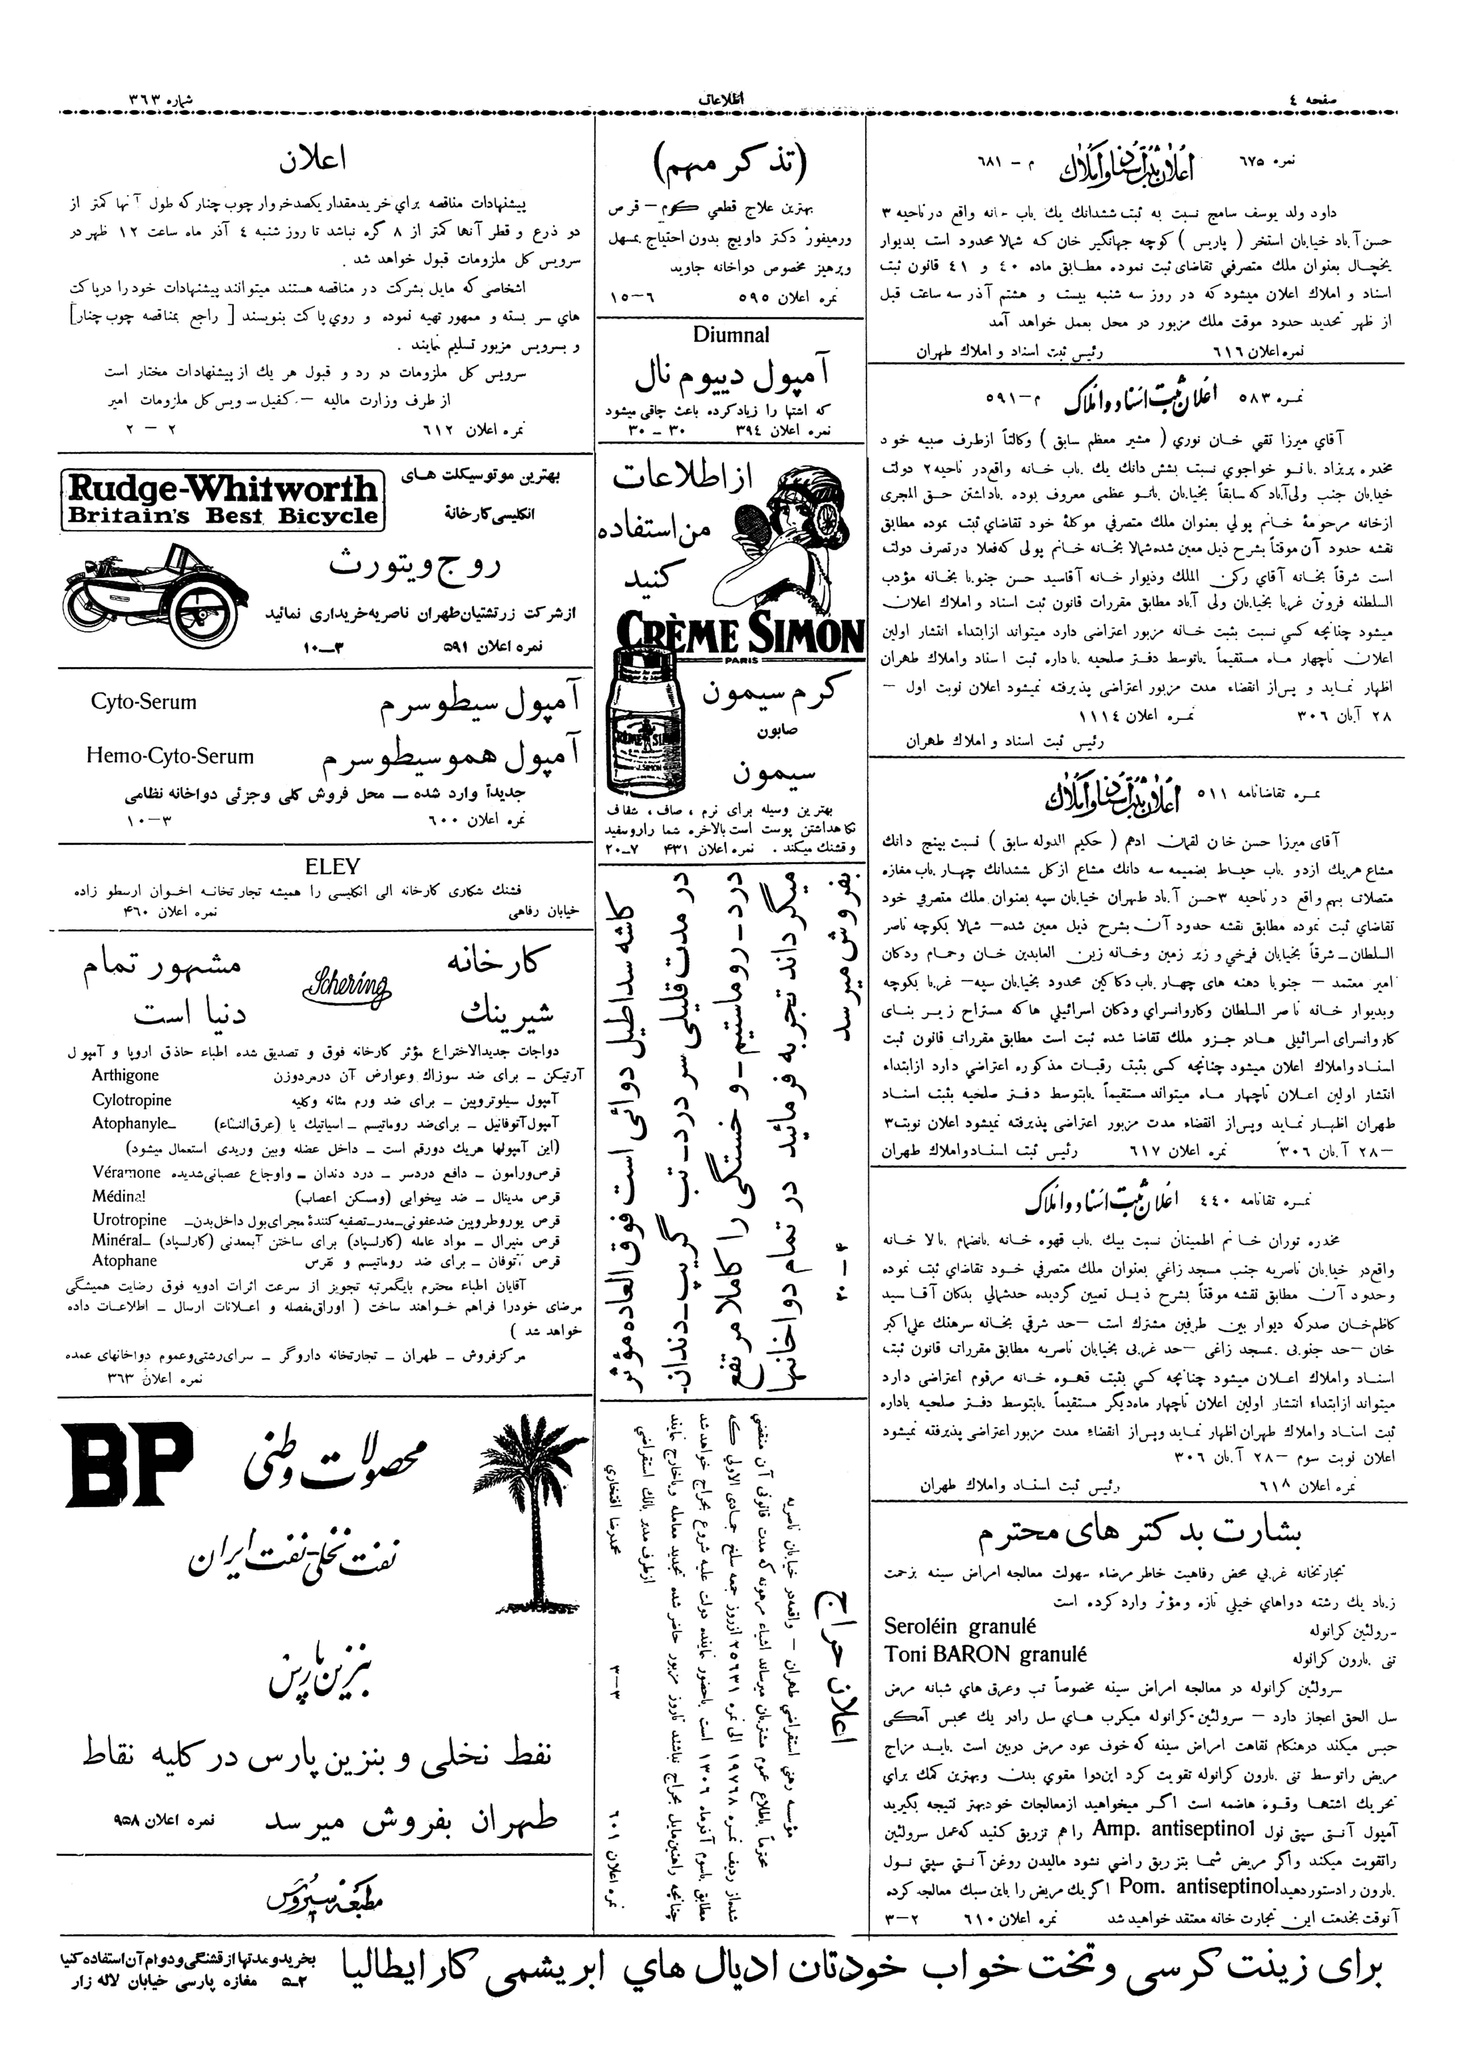 صفحه ٤
اطلاعات
شماره ٣٦٣
نمره ٦٧٥
اعلان ثبت اسناد و املاك
م – ٦٨١
داود ولد يوسف سامح نسبت به ثبت ششدانك يك باب خانه واقع در ناحيه ٣
حسن آباد خيابان استخر ( پاريس ) كوچه جهانگير خان كه شمالا محدود است بديوار
يخچال بعنوان ملك متصرفي تقاضاي ثبت نموده مطابق ماده ٤٠ و ٤١ قانون ثبت
اسناد و املاك اعلان ميشود كه در روز سه شنبه بيست و هشتم آذر سه ساعت قبل
از ظهر تحديد حدود موقت ملك مزبور در محل بعمل خواهد آمد
نمره اعلان ٦١٦ رئيس ثبت اسناد و املاك طهران
نمره ٥٨٣
اعلان ثبت اسناد و املاك
م – ٥٩١
آقاي ميرزا تقي خان نوري ( مشير معظم سابق ) وكالتاً ازطرف صبيه خود
مخدره پريزاد بانو خواجوي نسبت بشش دانك يك باب خانه واقع در ناحيه ٢ دولت
خيابان جنب ولي آباد كه سابقاً بخيابان بانو عظمى معروف بوده باداشتن حق المجرى
ازخانه مرحومهٔ خانم پولي بعنوان ملك متصرفي موكلهٔ خود تقاضاي ثبت نموده مطابق
نقشه حدود آن موقتاً بشرح ذيل معين شده شمالا بخانه خانم پولي كه فعلا در تصرف دولت
است شرقاً بخانه آقاي ركن الملك وديوار خانه آقاسيد حسن جنوبا بخانه مؤدب
السلطنه فروتن غربا بخيابان ولي آباد مطابق مقررات قانون ثبت اسناد و املاك اعلان
ميشود چنانچه كسي نسبت بثبت خانه مزبور اعتراضي دارد ميتواند ازابتداء انتشار اولين
اعلان تاچهار ماه مستقيماً ياتوسط دفتر صلحيه باداره ثبت اسناد و املاك طهران
اظهار نمايد و پس از انقضاء مدت مزبور اعتراضي پذيرفته نميشود اعلان نوبت اول –
٢٨ آبان ٣٠٦ نمره اعلان ١١١٤
رئيس ثبت اسناد و املاك طهران
نمره تقاضانامه ٥١١
اعلان ثبت اسناد و املاك
آقاي ميرزا حسن خان لقمان ادهم ( حكيم الدوله سابق ) نسبت بپنج دانك
مشاع هريك ازدو باب حياط بضميمه سه دانك مشاع ازكل ششدانك چهار باب مغازه
متصلاب بهم واقع در ناحيه ٣ حسن آباد طهران خيابان سپه بعنوان ملك متصرفي خود
تقاضاي ثبت نموده مطابق نقشه حدود آن بشرح ذيل معين شده– شمالا بكوچه ناصر
السلطان – شرقاً بخيابان فرخي و زير زمين وخانه زين العابدين خان وحمام ودكان
امير معتمد – جنوبا دهنه هاى چهار باب دكاكين محدود بخيابان سپه– غربا بكوچه
وبديوار خانه ناصر السلطان وكاروانسراي ودكان اسرائيلي ها كه مستراح زير بناى
كاروانسراى اسرائيلي ها در جزو ملك تقاضا شده ثبت است مطابق مقررات قانون ثبت
اسناد و املاك اعلان ميشود چنانچه كسي بثبت رقبات مذكوره اعتراضي دارد ازابتداء
انتشار اولين اعلان تاچهار ماه ميتواند مستقيماً ياتوسط دفتر صلحيه بثبت اسناد
طهران اظهار نمايد و پس از انقضاء مدت مزبور اعتراضي پذيرفته نميشود اعلان نوبت ٣
– ٢٨ آبان ٣٠٦ نمره اعلان ٦١٧ رئيس ثبت اسناد و املاك طهران
نمره تقانامه ٤٤٠
اعلان ثبت اسناد و املاك
مخدره توران خانم اطمينان نسبت بيك باب قهوه خانه بانضمام بالا خانه
واقع در خيابان ناصريه جنب مسجد زاغي بعنوان ملك متصرفي خود تقاضاي ثبت نموده
وحدود آن مطابق نقشه موقتاً بشرح ذيل تعيين گرديده حدشمالي بدكان آقا سيد
كاظم خان صدر كه ديوار بين طرفين مشترك است – حد شرقي بخانه سرهنك علي اكبر
خان – حد جنوبي بمسجد زاغي – حد غربي بخيابان ناصريه مطابق مقررات قانون ثبت
اسناد و املاك اعلان ميشود چنانچه كسي بثبت قهوه خانه مرقوم اعتراضي دارد
ميتواند ازابتداء انتشار اولين اعلان تاچهار ماه ديگر مستقيماً ياتوسط دفتر صلحيه باداره
ثبت اسناد و املاك طهران اظهار نمايد و پس از انقضاء مدت مزبور اعتراضي پذيرفته نميشود
اعلان نوبت سوم – ٢٨ آبان ٣٠٦
نمره اعلان ٦١٨ رئيس ثبت اسناد و املاك طهران
بشارت بدكتر هاى محترم
تجارتخانه غربي محض رفاهيت خاطر مرضاء سهولت معالجه امراض سينه بزحمت
زياد يك رشته دواهاي خيلي تازه و مؤثر وارد كرده است
سرولئين كرانوله Seroléin granulé
تنى بارون كرانوله Toni BARON granulé
سرولئين كرانوله در معالجه امراض سينه مخصوصاً تب وعرق هاي شبانه مرض
سل الحق اعجاز دارد – سرولئين كرانوله ميكرب هاي سل رادر يك محبس آهكي
حبس ميكند درهنكام نقاهت امراض سينه كه خوف عود مرض دربين است بايد مزاج
مريض را توسط تنى بارون كرانوله تقويت كرد اين دوا مقوي بدن وبهترين كمك براي
تحريك اشتها وقوه هاضمه است اگر ميخواهيد ازمعالجات خودبهتر نتيجه بگيريد
آمپول آنتي سپتي نول Amp. antiseptinol را هم تزريق كنيد كه عمل سرولئين
راتقويت ميكند واگر مريض شما بتزريق راضي نشود ماليدن روغن آنتي سپتي نول
بارون رادستور دهيد Pom. antiseptinol اگر يك مريض را باين سبك معالجه كرده
آنوقت بخدمت اين تجارت خانه معتقد خواهيد شد نمره اعلان ٦١٠ ٢–٣
(تذكر مهم)
بهترين علاج قطعي كرم – قرص
ورميفوژ دكتر داويچ بدون احتياج بمسهل
وپرهيز مخصوص دواخانه جاويد
نمره اعلان ٥٩٥ ٦–١٥
Diumnal
آمپول ديیوم نال
كه اشتها را زياد كرده باعث چاقي ميشود
نمره اعلان ٣٩٤ ٣٠ – ٣٠
از اطلاعات
من استفاده
كنيد
CRÈME SIMON
PARIS
كرم سيمون
صابون
سيمون
CRÈME SIMON
J. SIMON
بهترين وسيله براى نرم ، صاف ، شفاف
نكاهداشتن پوست است بالاخره شما را رو سفيد
و قشنك ميكند . نمره اعلان ٤٣١ ٧–٢٠
كاشه سداطيل دوائى است فوق العاده مؤثر
در مدت قليلى سر درد – تب گريپ – دندان
درد – روماتيسم – و خستگى را كاملا مرتفع
ميگرداند تجربه فرمائيد در تمام دواخانها
بفروش ميرسد ٤ – ٣٠
اعلان حراج
مؤسسه رهني استقراضي طهران – واقعه در خيابان ناصريه
محترماً باطلاع عموم مشتريان ميرساند اشياء مرهونه كه مدت قانونى آن منقضي
شده از رديف نمره ١٩٧٦٨ الى نمره ٢٥٦٣١ ازروز جمعه سلخ جمادى الاولى كه
مطابق باسوم آذرماه ١٣٠٦ است باحضور نماينده دولت عليه شروع بحراج خواهد شد
چنانچه راهنين مايل بحراج نباشند تاروز مزبور حاضر شده تجديد معامله وياخارج نمايند
ازطرف مدير بانك استقراضي
محمدرضا افتخاري
نمره اعلان ٦٠١ ٣–٣
اعلان
پيشنهادات مناقصه براي خريد مقدار يكصد خروار چوب چنار كه طول آنها كمتر از
دو ذرع و قطر آنها كمتر از ٨ گره نباشد تا روز شنبه ٤ آذر ماه ساعت ١٢ ظهر در
سرويس كل ملزومات قبول خواهد شد .
اشخاصي كه مايل بشركت در مناقصه هستند ميتوانند پيشنهادات خود را درپاكت
هاي سر بسته و ممهور تهيه نموده و روي پاكت بنويسند [ راجع بمناقصه چوب چنار ]
و بسرويس مزبور تسليم نمايند .
سرويس كل ملزومات در رد و قبول هر يك از پيشنهادات مختار است
از طرف وزارت ماليه – كفيل سرويس كل ملزومات امير
نمره اعلان ٦١٢ ٢ – ٢
بهترين موتوسيكلت هاى
Rudge-Whitworth
Britain's Best Bicycle
انكليسى كارخانهٔ
روج ويتورث
از شركت زرتشتيان طهران ناصريه خريدارى نمائيد
نمره اعلان ٥٩١ ٣–١٠
آمپول سيطوسرم Cyto-Serum
آمپول هموسيطوسرم Hemo-Cyto-Serum
جديداً وارد شده – محل فروش كلى وجزئى دواخانه نظامى
نمره اعلان ٦٠٠ ٣–١٠
ELEY
فشنك شكارى كارخانه الى انكليسى را هميشه تجارتخانه اخوان ارسطو زاده
خيابان رفاهى نمره اعلان ٤٦٠
كارخانه
شيرينك
Schering
مشهور تمام
دنيا است
دواجات جديدالاختراع مؤثر كارخانه فوق و تصديق شده اطباء حاذق اروپا و آمپول
آرتيكن – براى ضد سوزاك وعوارض آن درمردوزن Arthigone
آمپول سيلوتروپين – براى ضد ورم مثانه وكليه Cylotropine
آمپول آتوفانيل – براى ضد روماتيسم – اسياتيك يا (عرق النساء) – Atophanyle
(اين آمپولها هريك دورقم است – داخل عضله وبين وريدى استعمال ميشود)
قرص ورامون – دافع دردسر – درد دندان – واوجاع عصبانى شديده Véramone
قرص مدينال – ضد بيخوابى (ومسكن اعصاب) Médinal
قرص يوروطروپين ضدعفونى – مدر – تصفيه كنندهٔ مجراى بول داخل بدن – Urotropine
قرص منيرال – مواد عامله (كارلسپاد) براى ساختن آبمعدنى (كارلسپاد) – Minéral
قرص آتوفان – براى ضد روماتيسم و نقرس Atophane
آقايان اطباء محترم بايگمرتبه تجويز از سرعت اثرات ادويه فوق رضايت هميشگى
مرضاى خودرا فراهم خواهند ساخت ( اوراق مفصله و اعلانات ارسال – اطلاعات داده
خواهد شد )
مركز فروش – طهران – تجارتخانه داروگر – سراى رشتى وعموم دواخانهاى عمده
نمره اعلان ٣٦٣
BP
محصولات وطنى
نفت نخلى – نفت ايران
بنزين پارس
نفط نخلى و بنزين پارس در كليه نقاط
طهران بفروش ميرسد نمره اعلان ٩٥٨
مطبعه سيروس
براى زينت كرسى و تخت خواب خودتان اديال هاي ابريشمى كار ايطاليا
بخريد و مدتها از قشنگى و دوام آن استفاده كنيد
٢–٥ مغازه پارسى خيابان لاله زار